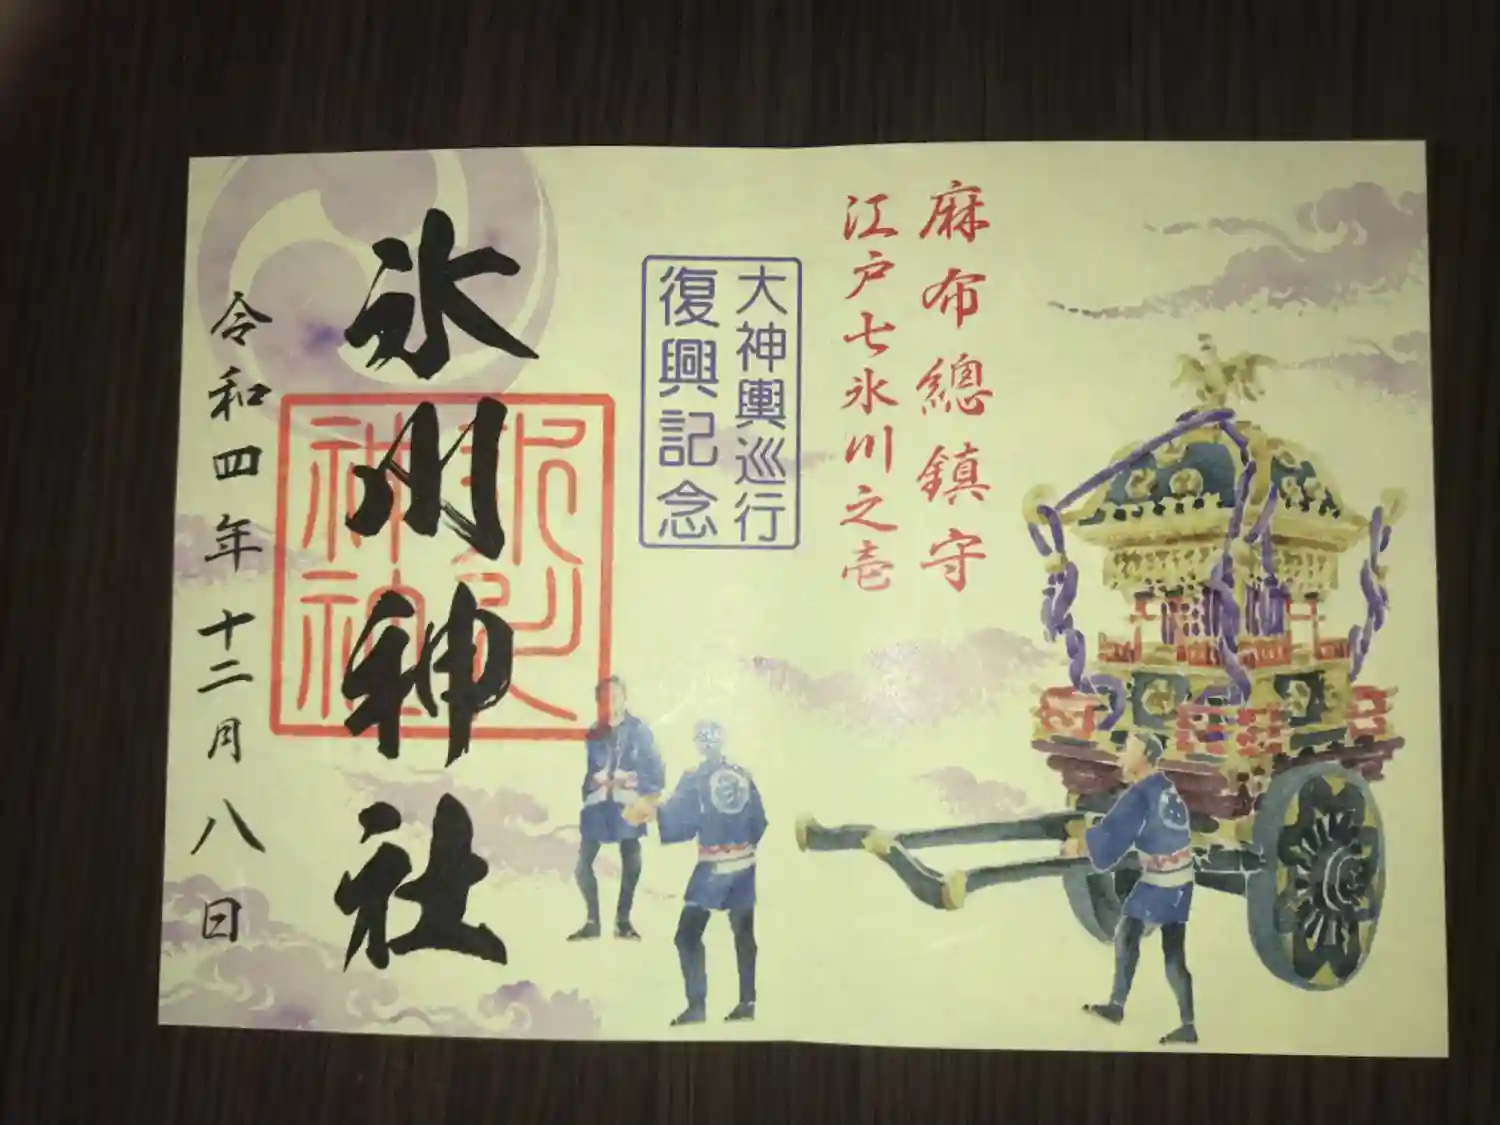 麻布總鎮守
江戸七氷川之壱
大神輿巡行
復興記念
氷川神社
氷川
神社
令和四年十二月八日